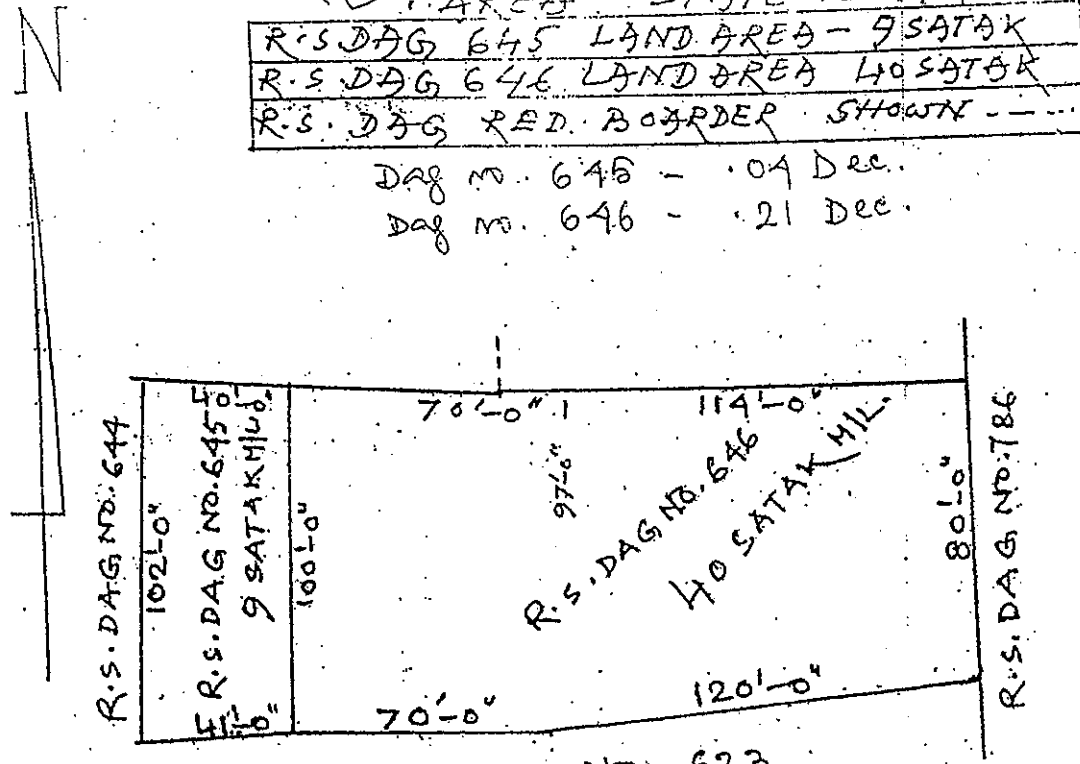 N
AREA
R.S DAG 645 LAND AREA - 9 SATAK
R.S. DAG 646 LAND AREA 40 SATAK
R.S. DAG RED. BOARDER SHOWN -----
Dag no. 645 - .04 Dec.
Dag no. 646 - .21 Dec.
R.S. DAG NO. 644
102'-0"
40'-0"
R.S. DAG NO. 645
9 SATAK M/L
41'-0"
100'-0"
70'-0"
97'-0"
114'-0"
R.S. DAG NO. 646
40 SATAK M/L.
80'-0"
R.S. DAG NO. 786
70'-0"
120'-0"